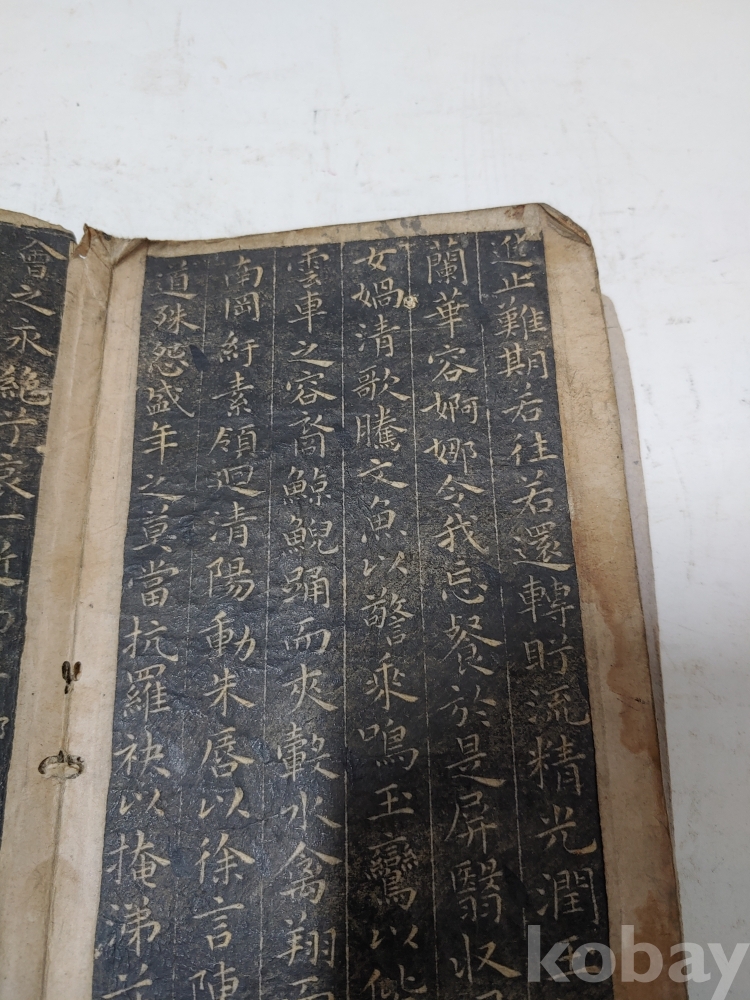 進止難期若往若還轉眄流精光潤玉
蘭華容婀娜令我忘餐於是屏翳收
女媧清歌騰文魚以警乘鳴玉鸞以偕
雲車之容裔鯨鯢踊而夾轂水禽翔而
南岡紆素領迴清陽動朱唇以徐言陳
道殊怨盛年之莫當抗羅袂以掩涕兮
會之永絕兮哀一逝
kobay